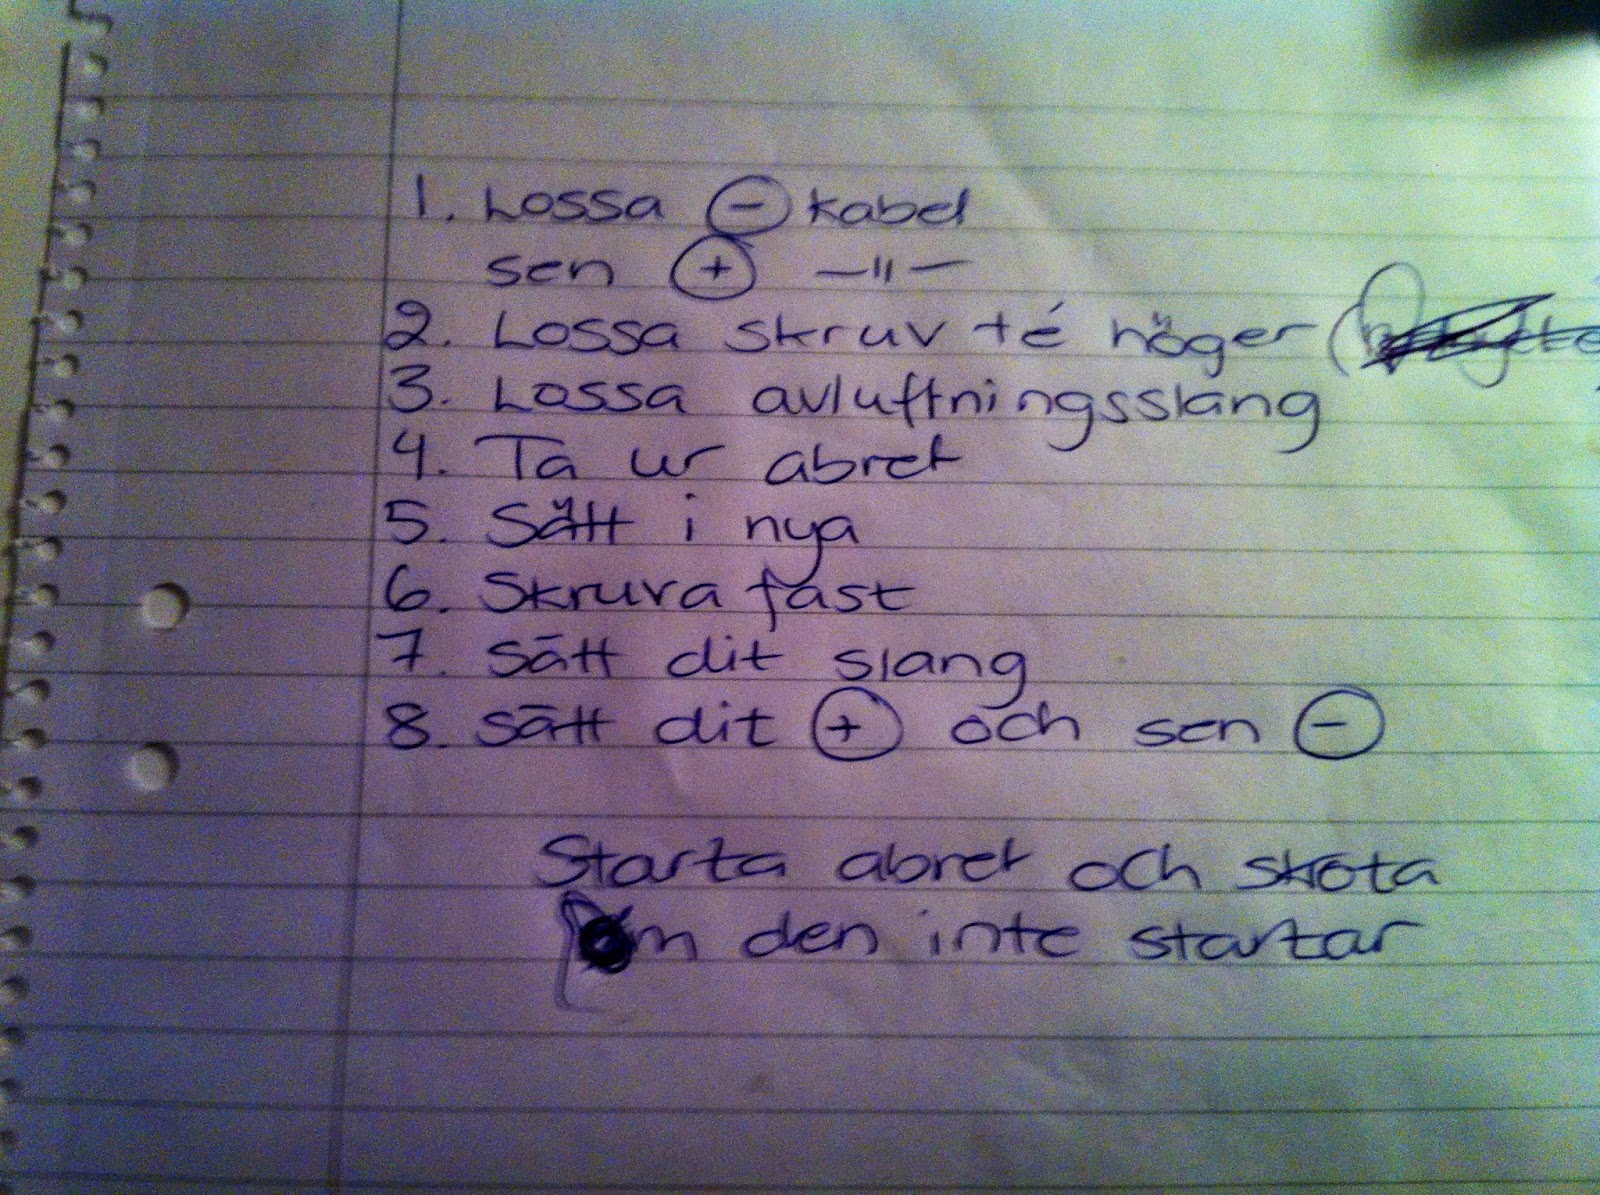 1. Lossa ⊖ kabel
sen ⊕ —ıı—
2. Lossa skruv té höger (
3. Lossa avluftningsslang
4. Ta ur abret
5. Sätt i nya
6. Skruva fast
7. Sätt dit slang
8. Sätt dit ⊕ och sen ⊖
Starta abret och sköta
om den inte startar